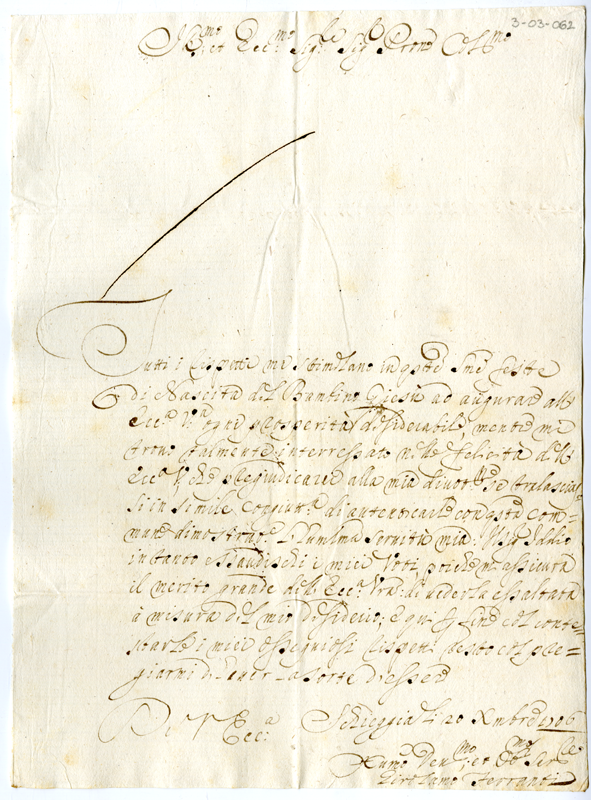 3-03-062
Ill:mo et Ecc:mo Sig:re Sig:re Prone Col:mo
Tutti i rispetti mi stimolano in qste Sme feste
di Nascita del Bambino Giesù ad augurare all'
Ecc:a V:a ogni prosperità desiderabile, mentre mi
trovo talmente interressato nelle felicità dell'
Ecc:a V: che pregiudicarei alla mia divot:ne se tralascias=
si in simile congiunt:a di autenticarle con qsta com=
mune dimostraz:e l'humilma servitù mia: N'sig: Iddio
intanto essaudischi i miei voti, poiche m'assicura
il merito grande dell' Ecc:a Vra: di vederla essaltata
à misura del mio desiderio; E qui p fine col conte=
starle i miei ossequiosi rispetti resto col pre=
giarmi d'haver la sorte d'essere
Di V Ecc:a
Scheggia li 20 Xmbre 1706
Humo Den:mo, et Obl:mo Ser:re
Girolamo Ferranti